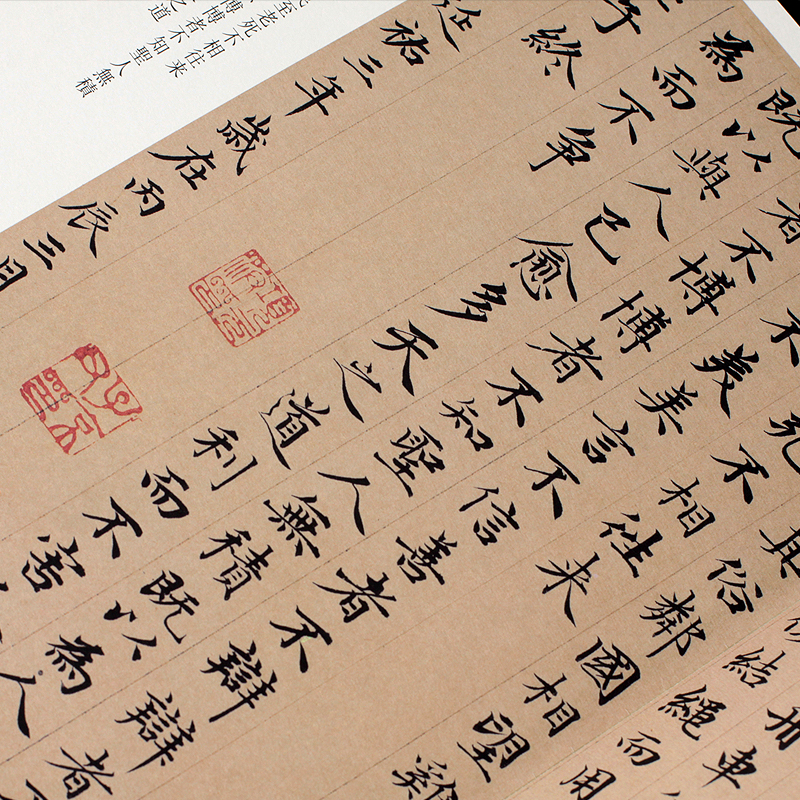 舟車
結繩而用
其俗鄰國相望雞
死不相往来
不美美言不信善者不辯辯者
者不博博者不知聖人無積既以為人
既以與人己愈多天之道利而不害
為而不争
子終
延祐三年歲在丙辰三月
至老死不相往来
博博者不知聖人無積
之道